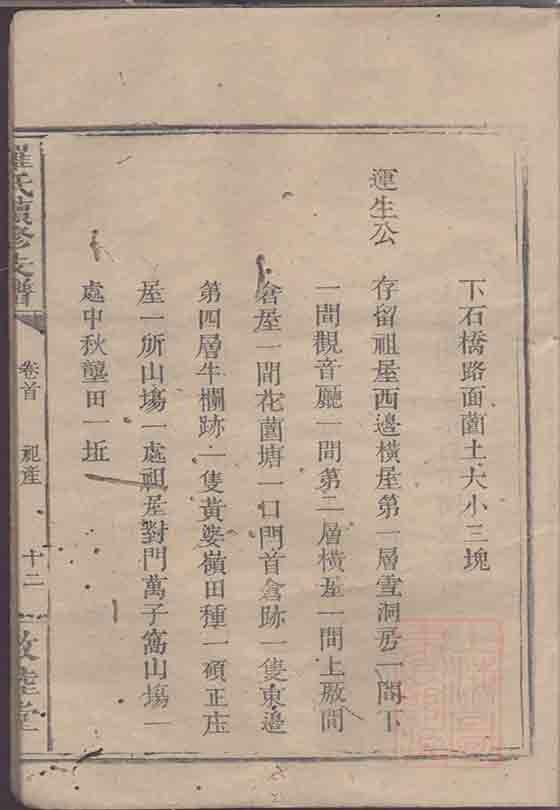 下石橋路面菌土大小三塊
運生公 存留祖屋西邊橫屋第一層雪洞房一間下
一間觀音廳一間第二層橫屋一間上廠間
倉屋一間花菌塘一口門首倉跡一隻東邊
第四層牛欄跡一隻黃婆嶺田種一碩正庄
屋一所山塲一處祖屋對門萬子窩山塲一
處中秋壟田一坵
羅氏續修支譜
卷首
祀產
十二
敦睦堂